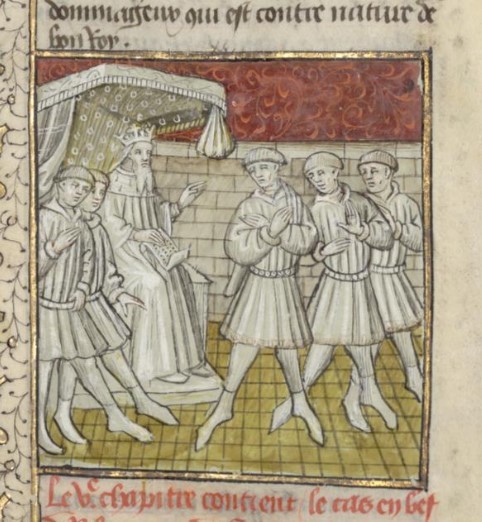 dommageux qui est contre nature de
bon Roy.
Le Ve chapitre contient le cas en bref